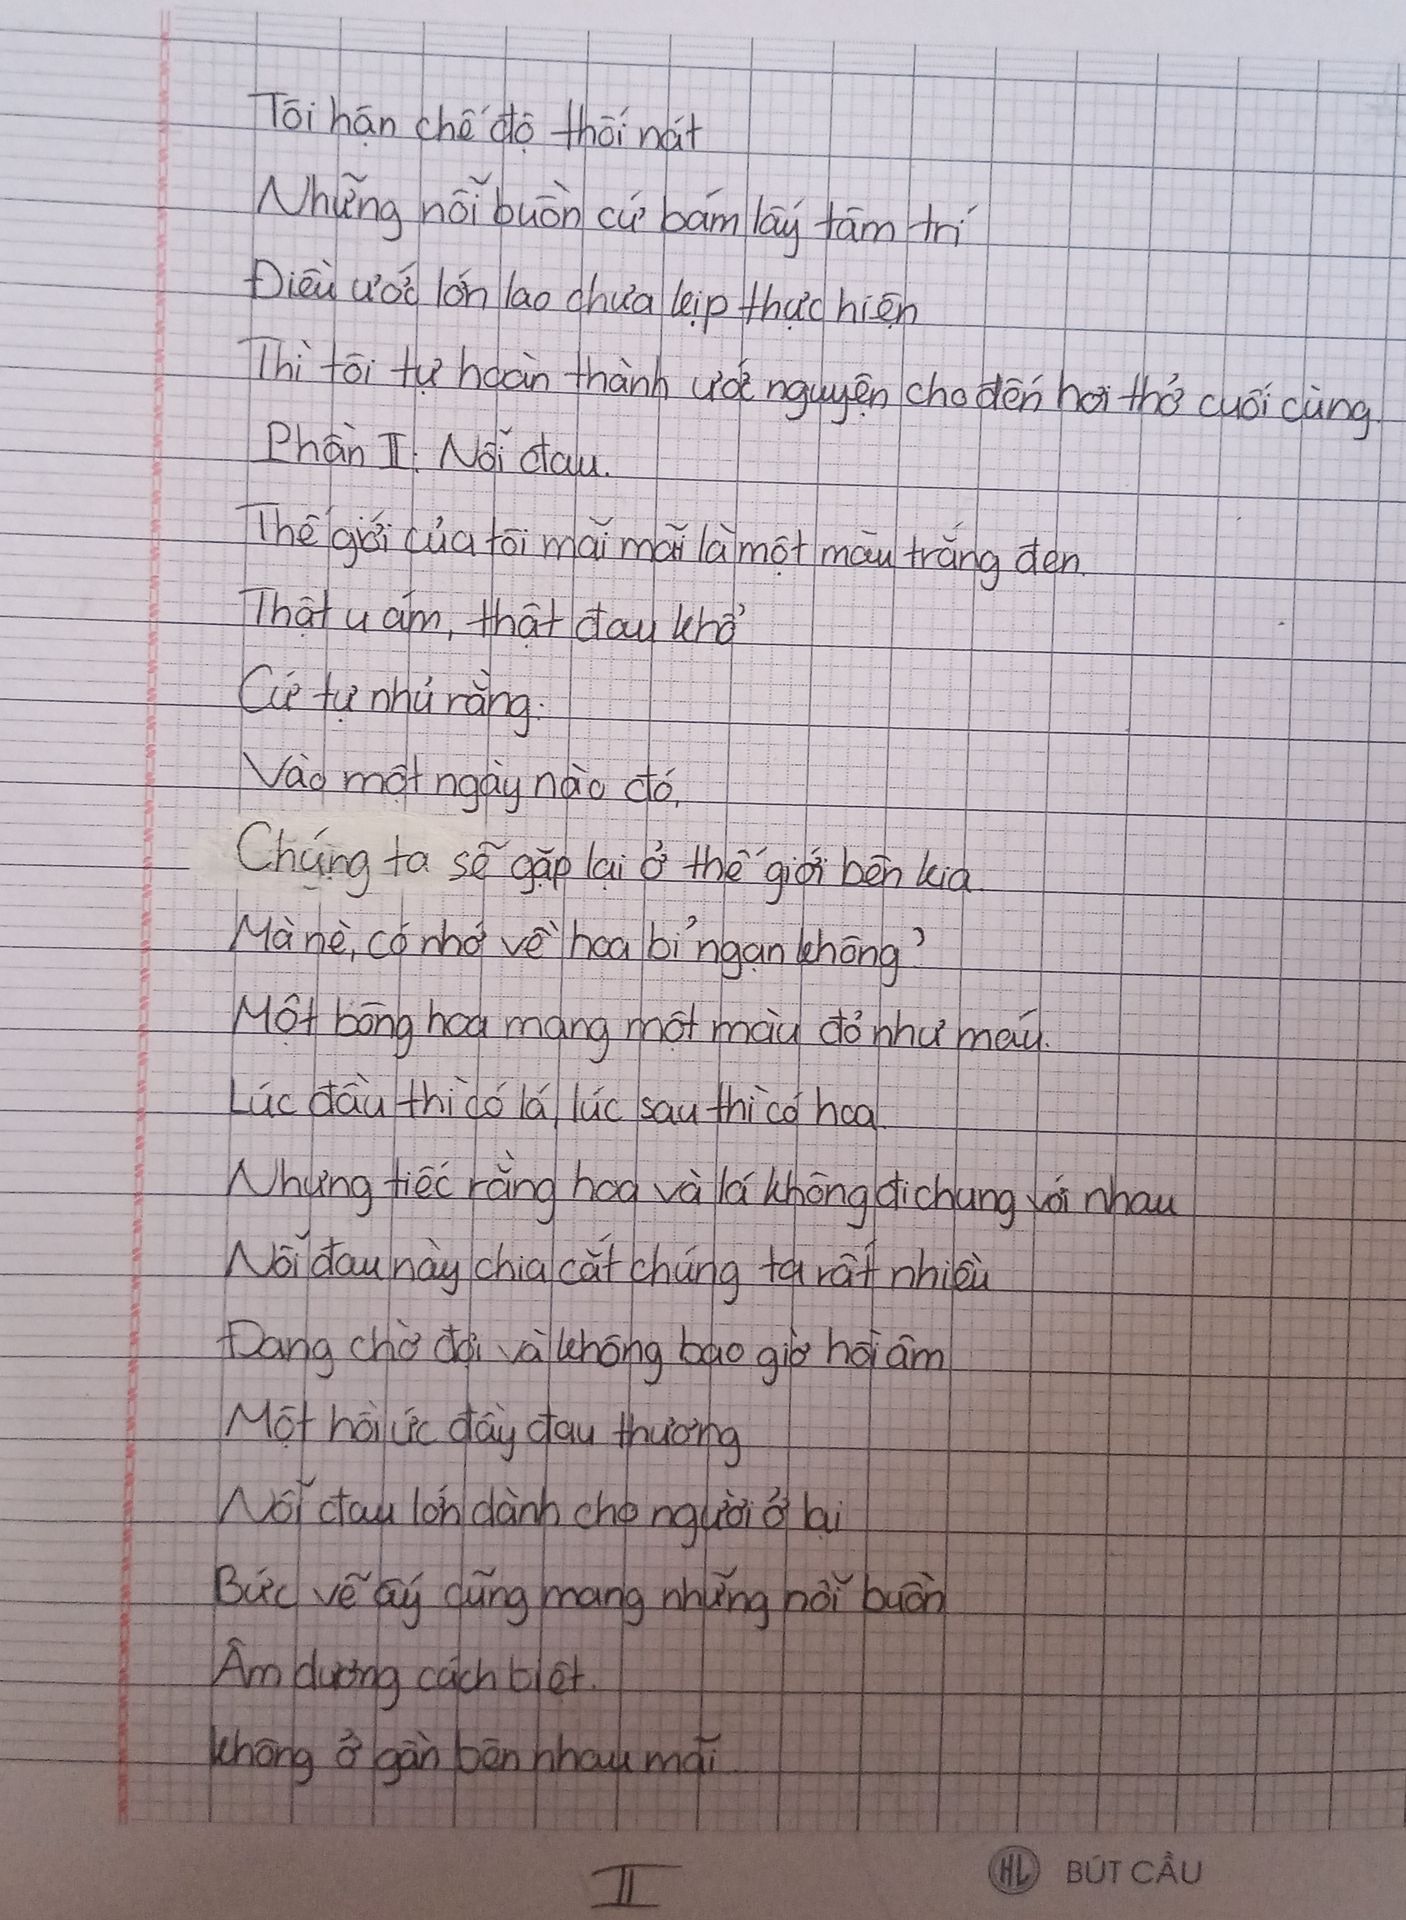 Tôi hận chế độ thối nát
Những nỗi buồn cứ bám lấy tâm trí
Điều ước lớn lao chưa kịp thực hiện
Thì tôi tự hoàn thành ước nguyện cho đến hơi thở cuối cùng.
Phần II: Nỗi đau.
Thế giới của tôi mãi mãi là một màu trắng đen.
Thật u ám, thật đau khổ
Cứ tự nhủ rằng:
Vào một ngày nào đó,
Chúng ta sẽ gặp lại ở thế giới bên kia.
Mà nè, có nhớ về hoa bỉ ngạn không?
Một bông hoa mang một màu đỏ như máu.
Lúc đầu thì có lá, lúc sau thì có hoa.
Nhưng tiếc rằng hoa và lá không đi chung với nhau
Nỗi đau này chia cắt chúng ta rất nhiều
Đang chờ đợi và không bao giờ hồi âm
Một hồi ức đầy đau thương
Nỗi đau lớn dành cho người ở lại
Bức vẽ ấy cũng mang những nỗi buồn
Âm dương cách biệt.
Không ở gần bên nhau mãi.
II
HL BÚT CẦU